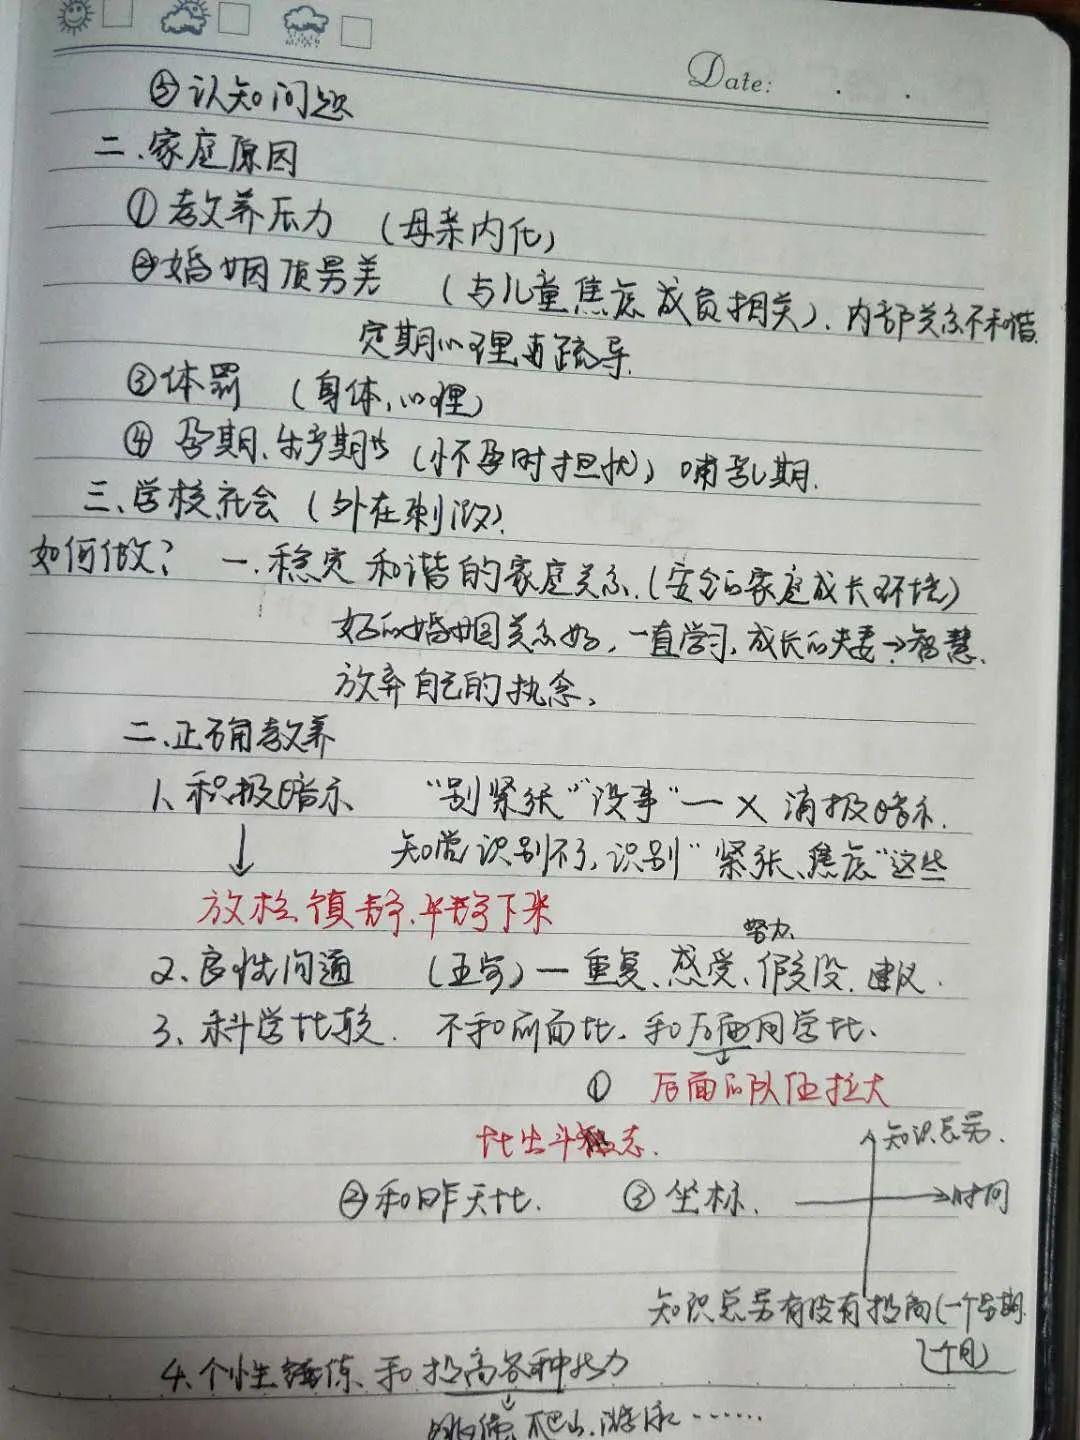 Date:
⑤认知问题
二、家庭原因
①教养压力 (母亲内化)
②婚姻质 (与儿童焦虑成负相关)、内部关系不和谐
定期心理 疏导
③体罚 (身体,心理)
④孕期、 (怀孕时担忧) 哺乳期.
三、学校社会 (外在刺激)
如何做? 一.稳定和谐的家庭关系.(安全的家庭成长环境)
好的婚姻关系好,一直学习,成长的夫妻→智慧.
放弃自己的执念、
二、正确教养
1、积极暗示 “别紧张”“没事”— × 消极暗示.
知觉识别不了,识别“紧张、焦虑”这些
放松镇静、平静下来
努力、
2、良性沟通 — 重复、感受、假设、建议.
3、科学比较. 不和前面比、和后面同学比、
① 后面的队伍拉大
比出 态.
知识总量.
②和昨天比. ③坐标、 时间
知识总量有没有提高(一个学期
一个月)
4、个性锤炼、和提高各种能力
爬山、游泳……